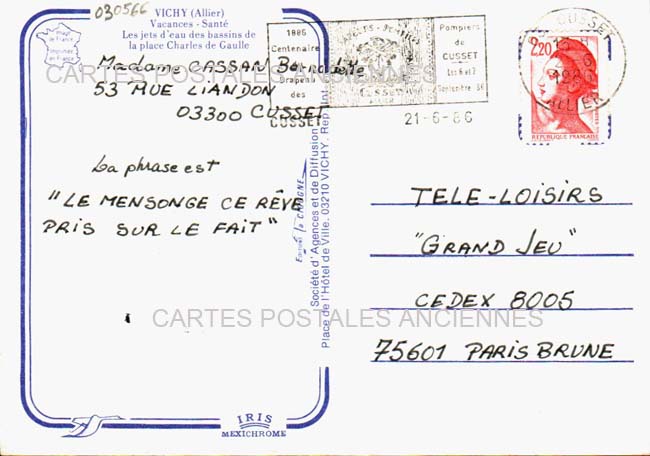 030566
VICHY (Allier)
Vacances - Santé
Les jets d'eau des bassins de
la place Charles de Gaulle
Image
de France
Imprimé
en France
Madame CASSAN
53 RUE LIANDON
03300 CUSSET
CUSSET
La phrase est
"LE MENSONGE CE RÊVE
PRIS SUR LE FAIT"
1886
Centenaire
Drapeau
des
Pompiers
de
CUSSET
Les 6 et 7
Septembre 86
CUSSET
ALLIER
2,20
REPUBLIQUE FRANCAISE
21-6-86
TELE-LOISIRS
"GRAND JEU"
CEDEX 8005
75601 PARIS BRUNE
Société d'Agences et de Diffusion
Place de l'Hôtel de Ville. 03210 VICHY. Rep. Int.
CARTES POSTALES ANCIENNES
CARTES POSTALES ANCIENNES
IRIS
MEXICHROME